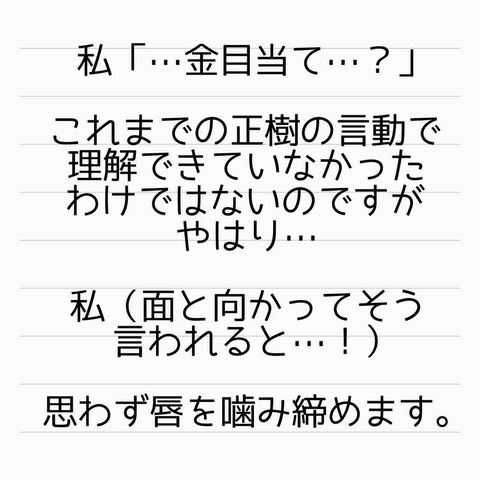 私「…金目当て…？」
これまでの正樹の言動で
理解できていなかった
わけではないのですが
やはり…
私（面と向かってそう
言われると…！）
思わず唇を噛み締めます。